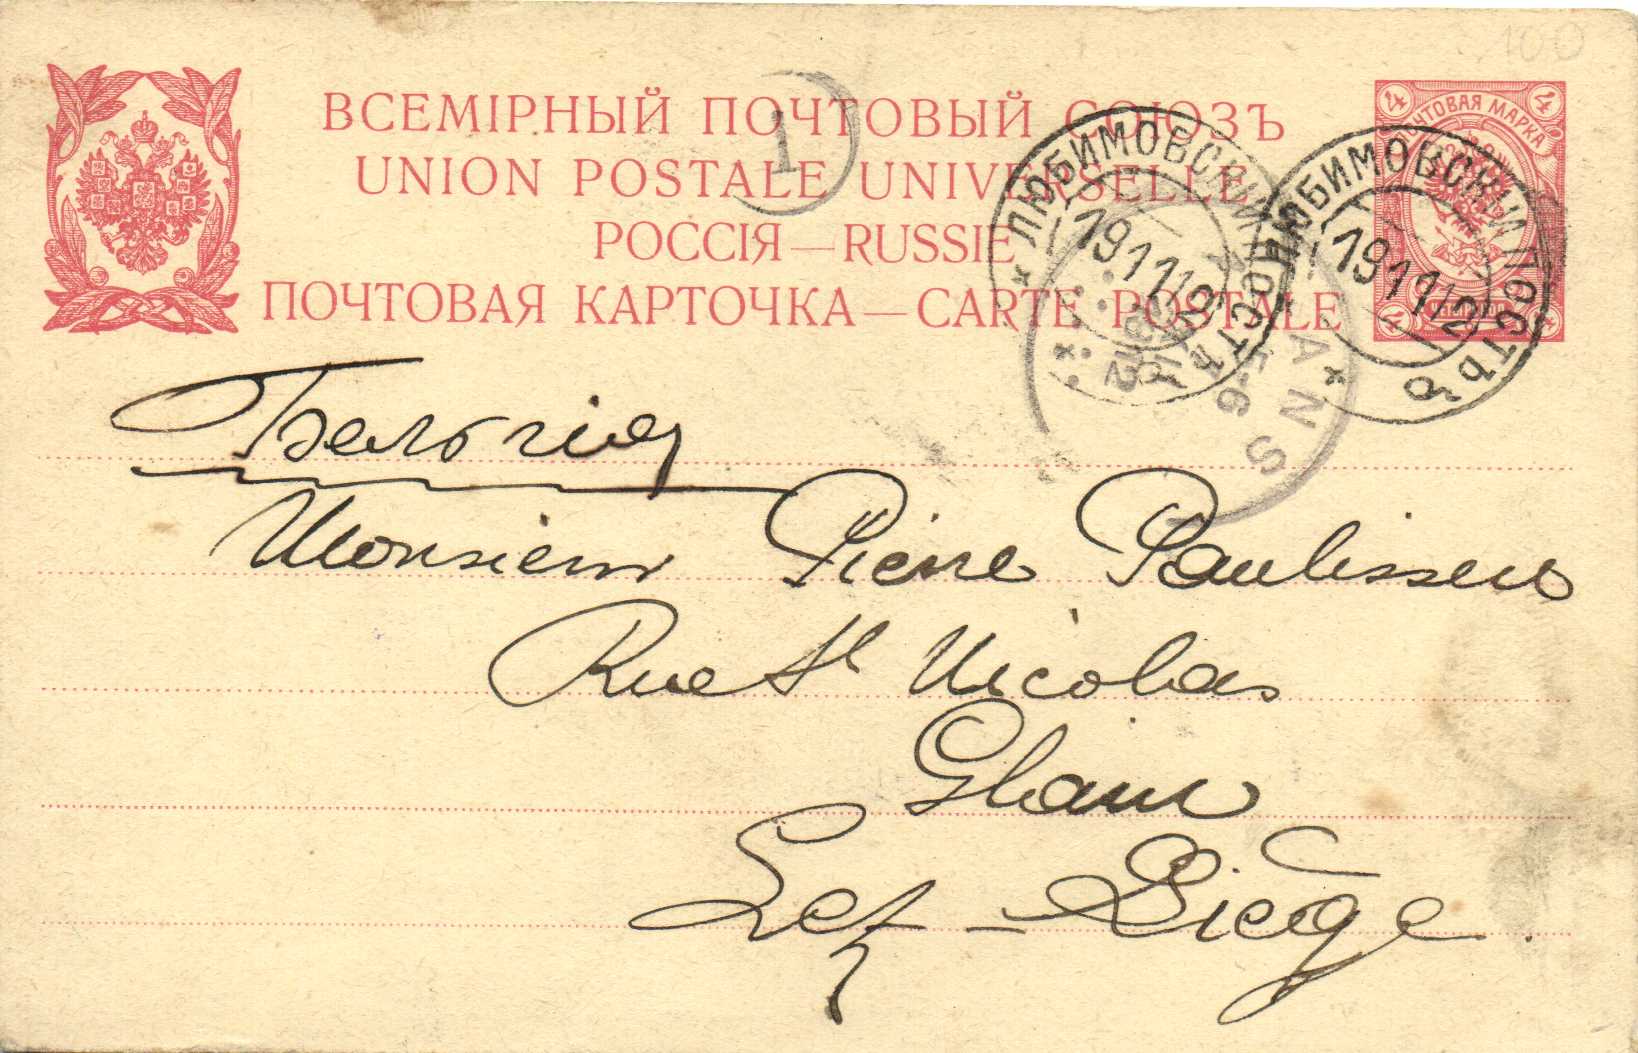 100
ВСЕМІРНЫЙ ПОЧТОВЫЙ СОЮЗЪ
UNION POSTALE UNIVERSELLE
РОССІЯ—RUSSIE
ПОЧТОВАЯ КАРТОЧКА—CARTE POSTALE
4 ПОЧТОВАЯ МАРКА 4
4 4
1
ЛЮБИМОВСКИЙ ПОСТЪ
1911
ЛЮБИМОВСКИЙ ПОСТЪ
1911 12
ANS
5-6
1912
Бельгія
Monsieur Pierre Paulissen
Rue St Nicolas
Glain
Lez - Liège